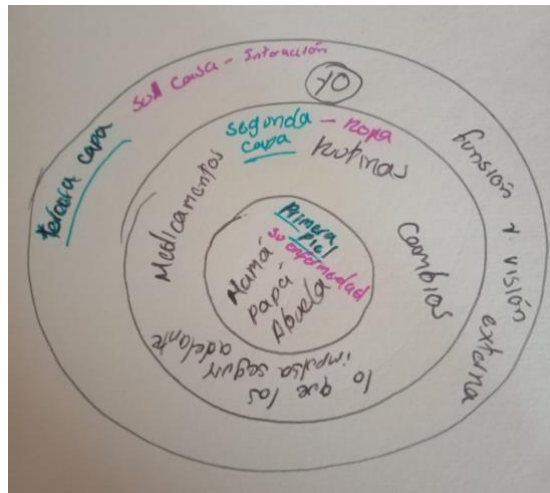 tercera capa
su casa - Interacción
YO
función y visión
externa
segunda - ropa
capa
Rutinas
Medicamentos
Cambios
lo que las
impulsa seguir
adelante
Primera
piel
su enfermedad
Mamá
papá
Abuela